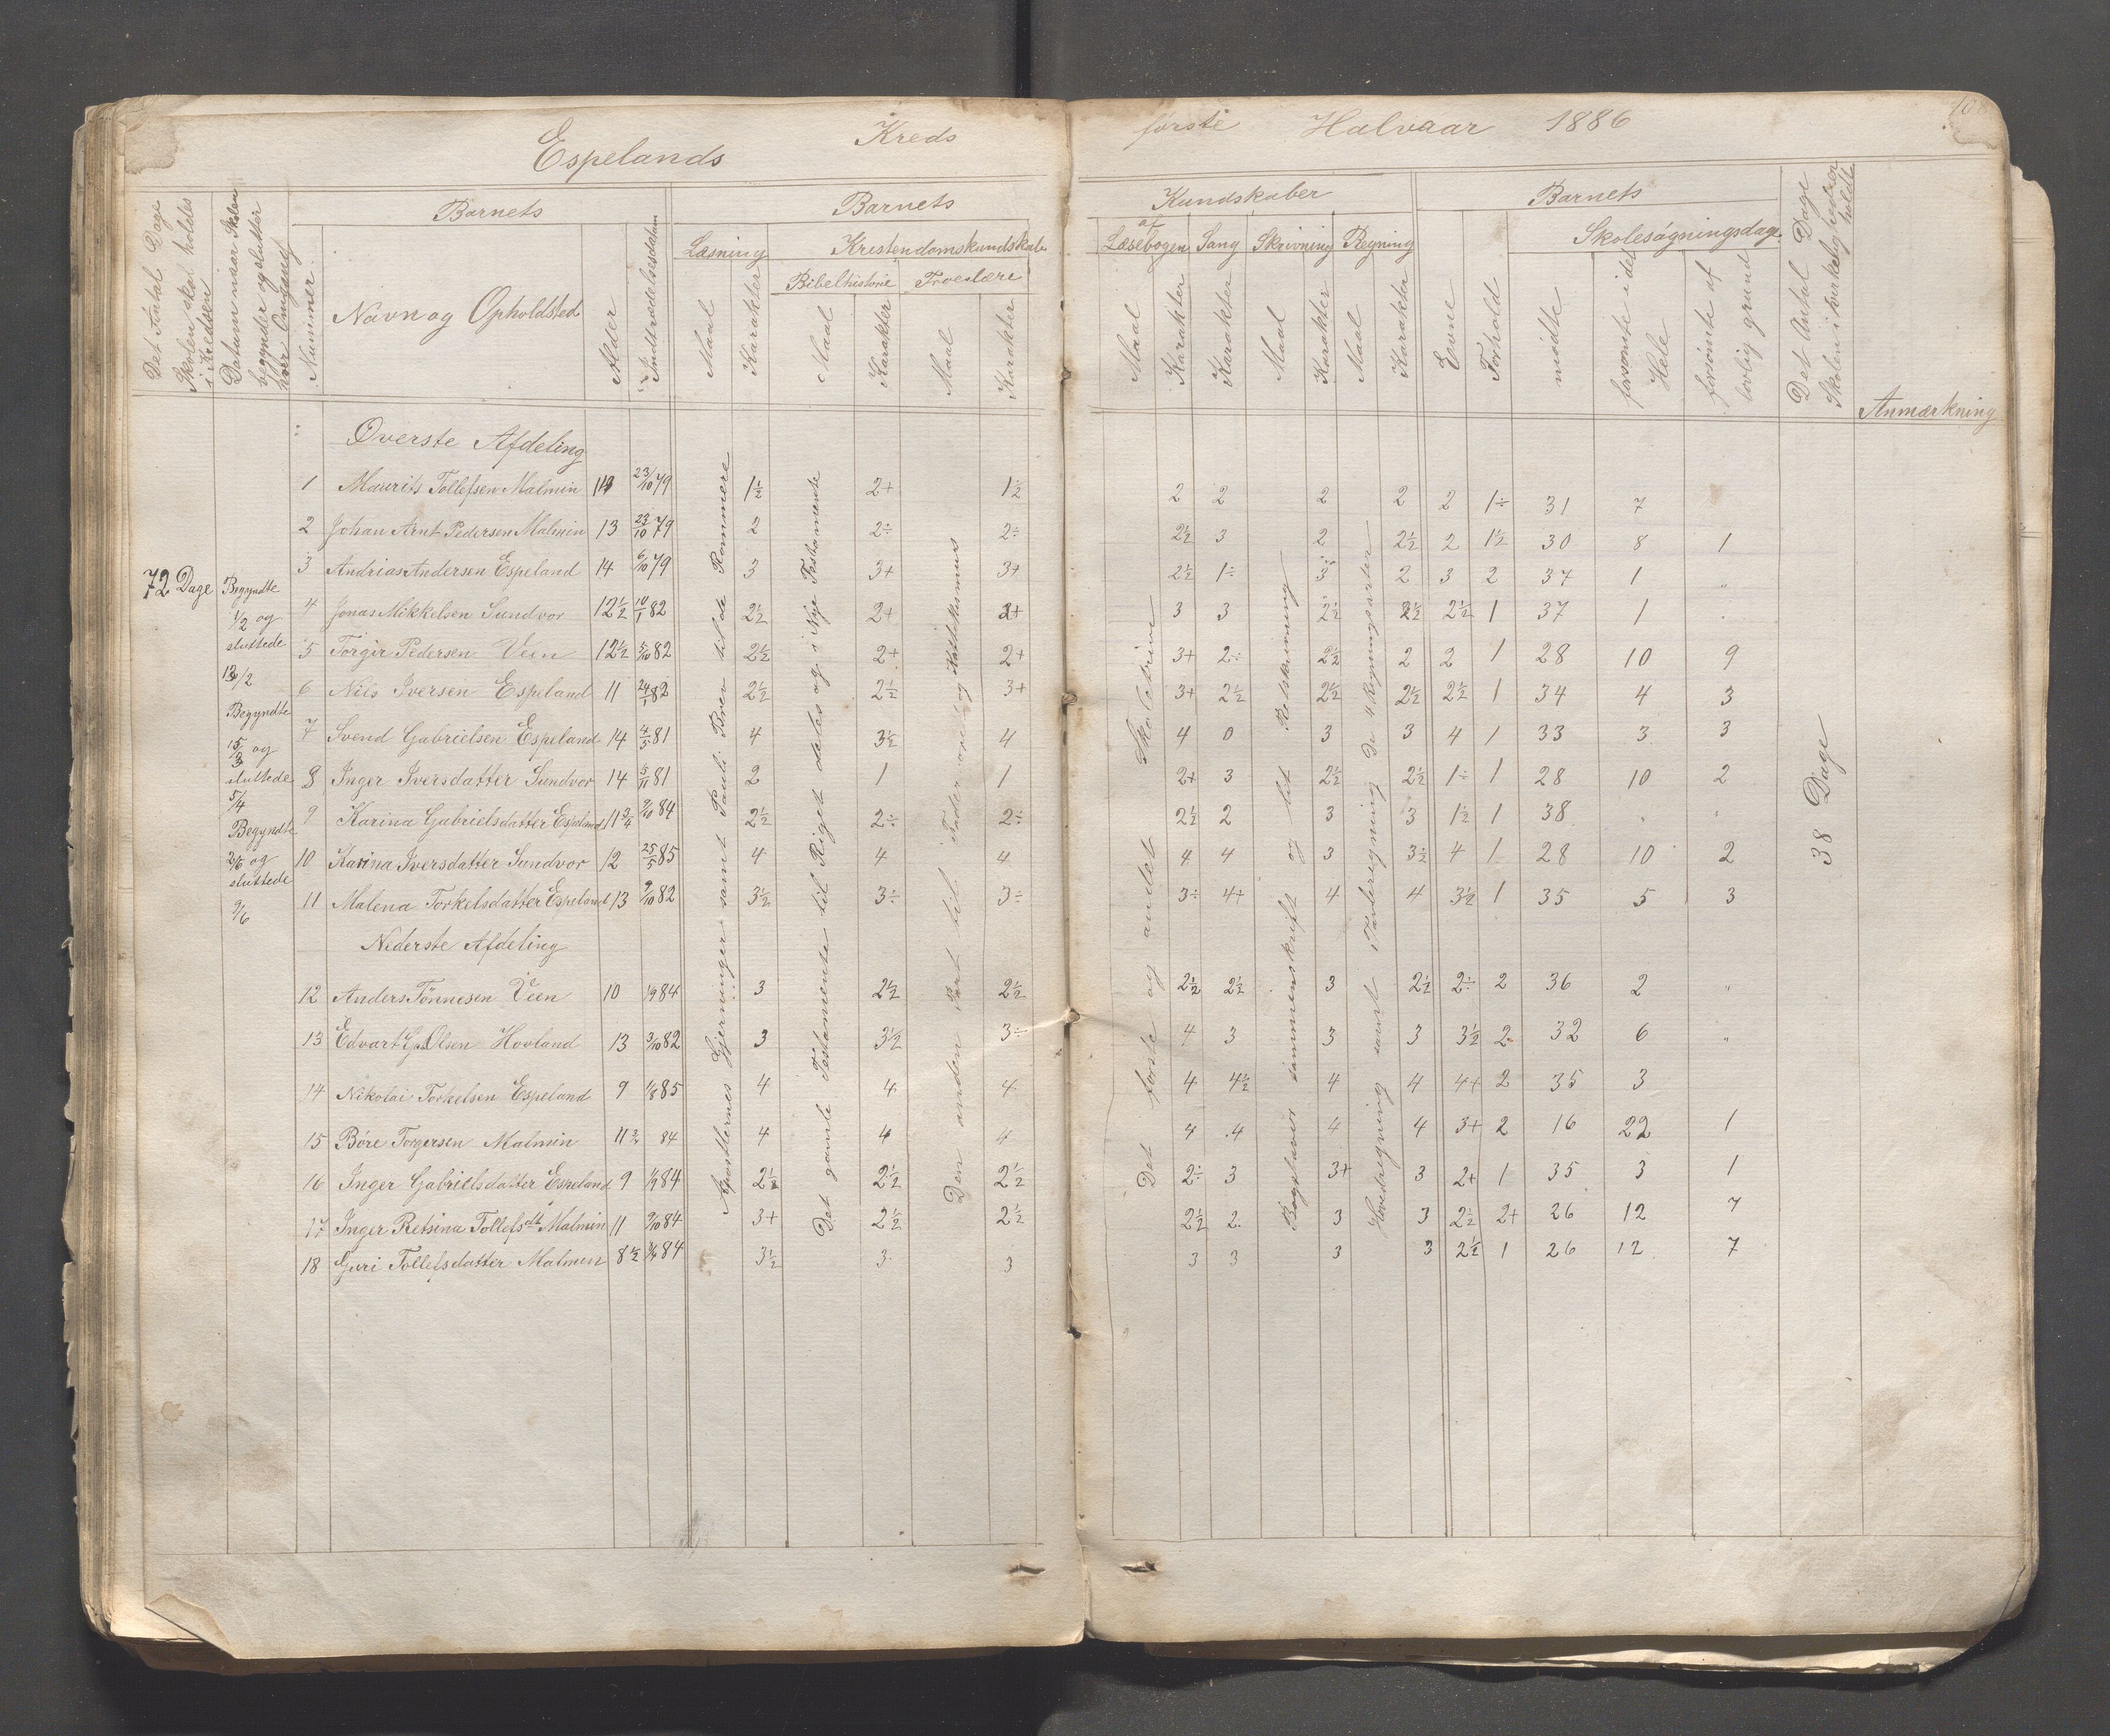 Espelands Kreds første Halvaar 1886
Det Antal Dage Skolen skal holdes i Kredsen
Datum naar Skolen begynder og slutter hver Omgang
Nummer
Barnets
Navn og Opholdsted
Alder
Indtrædelsesdatum
Barnets Kundskaber
Læsning
Maal
Karakter
Kristendomskundskab
Bibelhistorie
Maal
Karakter
Troeslære
Maal
Karakter
af Læsebogen
Maal
Karakter
Sang
Karakter
Skrivning
Maal
Karakter
Regning
Maal
Karakter
Barnets
Evne
Forhold
Skolesøgningsdage
mødte
forsømte i det Hele
forsømte af lovlig grund
Det Antal Dage Skolen i virkeligheden holdtes
Anmærkning
72 Dage
Begyndte
1/2 og
sluttede
13/2
Begyndte
15/3 og
sluttede
5/4
Begyndte
2/6 og
sluttede
9/6
Øverste Afdeling
1 Maurits Tollefsen Malmin 23/10 79 1½ 2+ 1½ 2 2 2 2 2 1÷ 31 7
2 Johan Arnt Pedersen Malmin 13 23/10 79 2 2÷ 2÷ 2½ 3 2 2½ 2 1½ 30 8 1
3 Andrias Andersen Espeland 14 6/10 79 3 3+ 3+ 2½ 1÷ 3 2 3 2 37 1 "
4 Jonas Mikkelsen Sundvor 12½ 10/1 82 2½ 2+ 2+ 3 3 2½ 2½ 2½ 1 37 1 "
5 Törgir Pedersen Veen 12½ 5/10 82 2½ 2+ 2+ 3+ 2÷ 2½ 2 2 1 28 10 9
6 Nils Iversen Espeland 11 24/1 82 2½ 2½ 3+ 3+ 2½ 2½ 2½ 2½ 1 34 4 3
7 Svend Gabrielsen Espeland 14 4/5 81 4 3½ 4 4 0 3 3 4 1 33 3 3
8 Inger Iversdatter Sundvor 14 5/11 81 2 1 1 2+ 3 2½ 2½ 1÷ 1 28 10 2
9 Karina Gabrielsdatter Espeland 11¾ 9/10 84 2½ 2÷ 2÷ 2½ 2 3 3 1½ 1 38 " "
10 Karina Iversdatter Sundvor 12 25/5 85 4 4 4 4 4 3 3½ 4 1 28 10 2
11 Malena Torkelsdatter Espeland 13 9/10 82 3½ 3÷ 3÷ 3÷ 4+ 4 4 3½ 1 35 5 3
Nederste Afdeling
12 Anders Tönnesen Veen 10 1/9 84 3 2½ 2½ 2½ 2½ 3 2½ 2÷ 2 36 2 "
13 Edvart G. Olsen Hovland 13 3/10 82 3 3½ 3÷ 4 3 3 3 3½ 2 32 6 "
14 Nikolai Torkelsen Espeland 9 1/8 85 4 4 4 4 4½ 4 4 4+ 2 35 3
15 Böre Torgersen Malmin 11¾ 84 4 4 4 4 4 4 4 3+ 2 16 22 1
16 Inger Gabrielsdatter Espeland 9 1/9 84 2½ 2½ 2½ 2÷ 3 3+ 3 2+ 1 35 3 1
17 Inger Retsina Tollefsdt Malmin 11 9/10 84 3+ 2½ 2½ 2½ 2 3 3 2½ 2+ 26 12 7
18 Guri Tollefsdatter Malmin 8½ 84 3½ 3 3 3 3 3 3 2½ 1 26 12 7
Apostlernes Gjerninger samt Pauli Brev til de Rommere
Det gamle Testamente til Riget deles og i Nye Testamente
Den anden Part til Fader vor og Katekismus
Det første og andet Skoletrin
Bogstaver sammenskrift og lit Retskrivning
Hovedregning samt Tavleregning de 4 Regningsarter
38 Dage